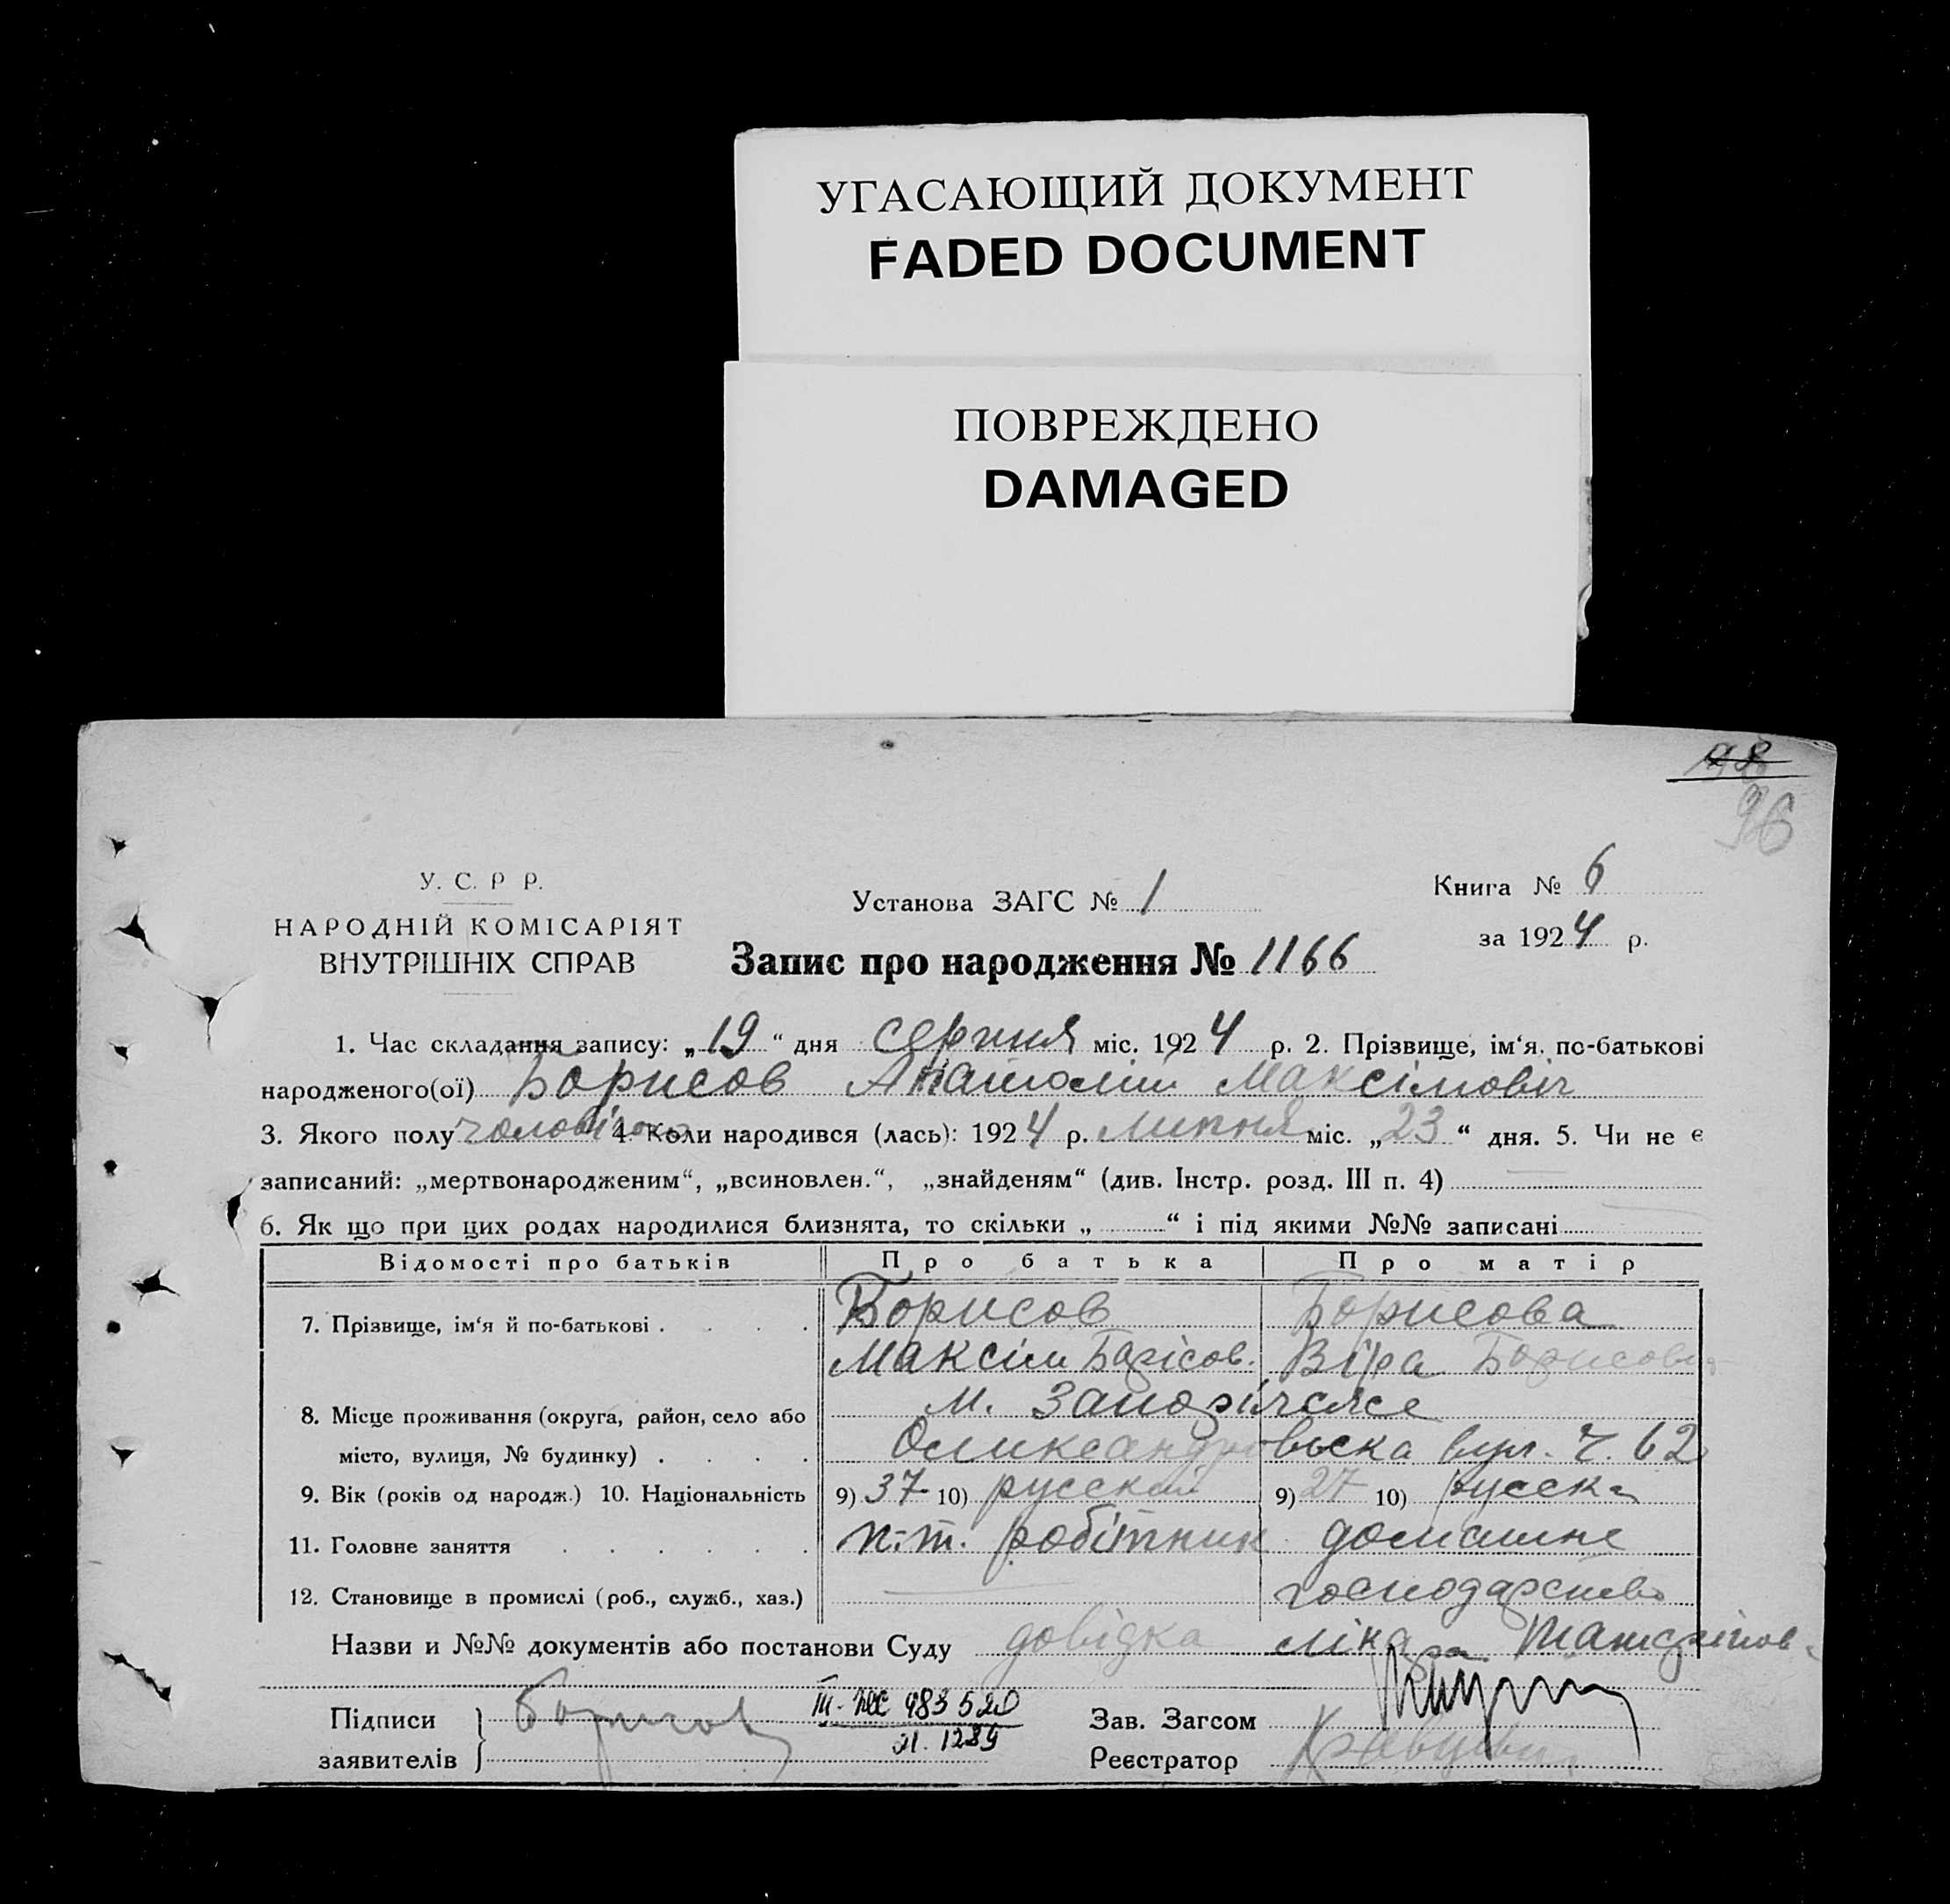 УГАСАЮЩИЙ ДОКУМЕНТ
FADED DOCUMENT
ПОВРЕЖДЕНО
DAMAGED
98
96
У. С. Р Р.
НАРОДНІЙ КОМІСАРІЯТ
ВНУТРІШНІХ СПРАВ
Установа ЗАГС № 1
Книга № 6
за 1924 р.
Запис про народження № 1166
1. Час складання запису: „19“ дня серпня міс. 1924 р. 2. Прізвище, ім‘я, по-батькові
народженого(ої) Борисов Анатолій Максімовіч
3. Якого полу чоловічого 4. Коли народився (лась): 1924 р. липня міс. „23“ дня. 5. Чи не є
записаний: „мертвонародженим“, „всиновлен.“, „знайденям“ (див. Інстр. розд. III п. 4)
6. Як що при цих родах народилися близнята, то скільки „ “ і під якими №№ записані
Відомості про батьків Про батька Про матір
7. Прізвище, ім‘я й по-батькові . . . . Борисов Борисова
Максім Борісов. Віра Борисовн
м. Запоріжжє
8. Місце проживання (округа, район, село або
місто, вулиця, № будинку) . . . . Олександровська вул. ч. 62
9. Вік (років од народж.) 10. Національність 9) 37 10) русский 9) 27 10) русска
11. Головне заняття . . . . . . п.-т. робітник домашнє
12. Становище в промислі (роб., служб., хаз.) господарство
Назви и №№ документів або постанови Суду довідка лікаря
Підписи заявителів Борисов
483520
1289
Зав. Загсом
Реєстратор